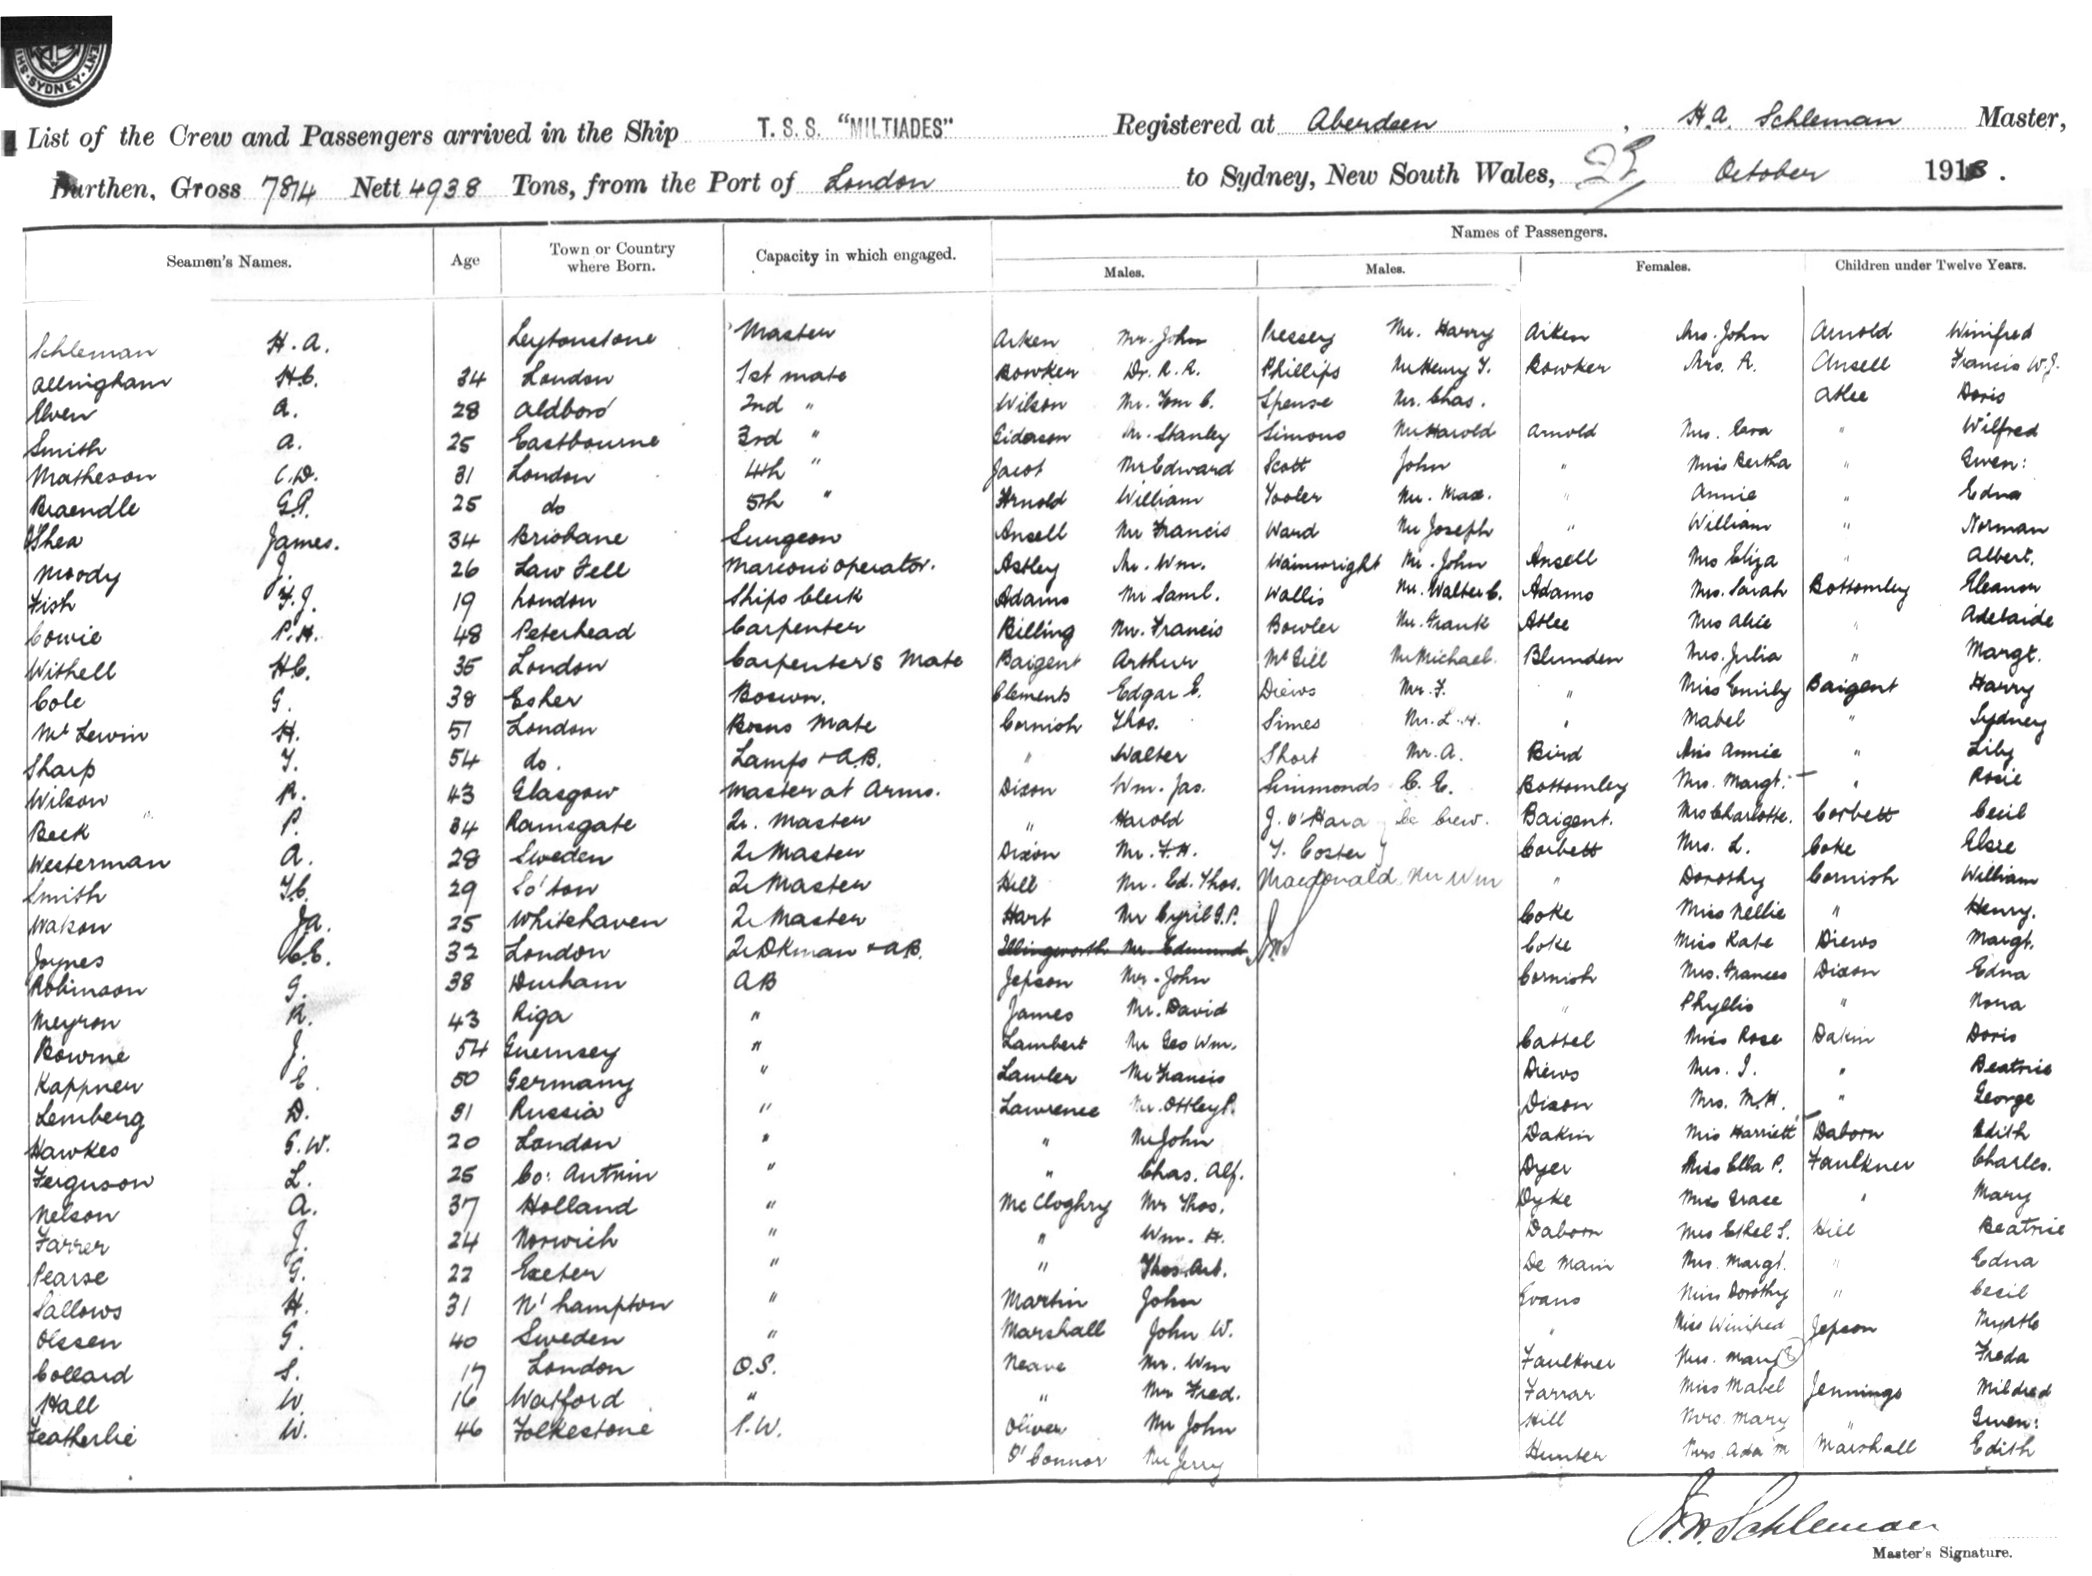 SYDNEY
List of the Crew and Passengers arrived in the Ship T. S. S. "MILTIADES" Registered at Aberdeen, H. A. Schleman Master,
Burthen, Gross 7814 Nett 4938 Tons, from the Port of London to Sydney, New South Wales, October 1913.
Names of Passengers.
Seamen's Names. Age Town or Country where Born. Capacity in which engaged. Males. Males. Females. Children under Twelve Years.
Schleman H. A. Leytonstone Master Aiken Mr. John Pressey Mr. Harry Aiken Mrs. John Arnold Winifred
Allingham H.C. 34 London 1st mate Bowker Dr. R. R. Phillips Mr Henry T. Bowker Mrs. R. Ansell Francis W. J.
Elven A. 28 Aldboro' 2nd " Wilson Mr. Tom C. Spense Mr. Chas. Atlee Doris
Smith A. 25 Eastbourne 3rd " Stanley Simons Mr Harold Arnold Mrs. Cara " Wilfred
Matheson C. D. 31 London 4th " Jacot Mr Edward Scott John " Miss Bertha " Gwen:
Braendle G.P. 25 do 5th " Arnold William Tooler Mr. Max. " Annie " Edna
O'Shea James. 34 Brisbane Surgeon Ansell Mr Francis Ward Mr Joseph " William " Norman
Moody J. 26 Law Fell Marconi operator. Astley Mr. Wm. Wainwright Mr. John Ansell Mrs Eliza " Albert.
Fish F. J. 19 London Ships Clerk Adams Mr Saml. Wallis Mr. Walter C. Adams Mrs. Sarah Bottomley Eleanor
Cowie P. H. 48 Peterhead Carpenter Billing Mr. Francis Bowler Mr. Frank Atlee Mrs Alice " Adelaide
Withell H.C. 35 London Carpenter's Mate Baigent Arthur McGill Mr Michael. Blunden Mrs. Julia " Margt.
Cole G. 38 Esher Bosun. Clements Edgar E. Diews Mr. F. " Miss Emily Baigent Harry
McLewin H. 51 London Bosuns Mate Cornish Thos. Simes Mr. L. H. " Mabel " Sydney
Sharp T. 54 do. Lamps + A.B. " Walter Short Mr. A. Bird Miss Annie " Lily
Wilson R. 43 Glasgow Master at Arms. Dixon Wm. Jas. Simmonds C. E. Bottomley Mrs. Margt. " Rosie
Beek P. 34 Ramsgate Qr. Master " Harold J. O'Hara Crew. Baigent. Mrs Charlotte. Corbett Cecil
Westerman A. 28 Sweden Qr Master Dixon Mr. F. H. T. Coster Corbett Mrs. L. Coke Elsie
Smith T.C. 29 So'ton Qr Master Hill Mr. Ed. Thos. Macdonald Mr Wm " Dorothy Cornish William
Watson Ja. 25 Whitehaven Qr Master Hart Mr Cyril G. P. Coke Miss Nellie " Henry.
Joynes C.C. 32 London Qr Dkman + AB. Illingworth Mr. Edmund Coke Miss Kate Diews Margt.
Robinson G. 38 Durham AB Jepson Mr. John Cornish Mrs. Frances Dixon Edna
Meyron R. 43 Riga " James Mr. David " Phyllis " Nona
Bowrne J. 54 Guernsey " Lambert Mr Geo Wm. Cattel Miss Rose Dakin Doris
Kappner E. 50 Germany " Lawler Mr Francis Diews Mrs. I. " Beatrice
Lemberg D. 31 Russia " Lawrence Mr. Ottley P. Dixon Mrs. M. H. " George
Hawkes G. W. 20 London " " Mr John Dakin Harriett Daborn Edith
Ferguson L. 25 Co: Antrim " " Chas. Alf. Dyer Miss Ella P. Faulkner Charles.
Nelson A. 37 Holland " McCloghry Mr Thos. Dyke Grace " Mary
Farrer J. 24 Norwich " " Wm. H. Daborn Mrs Ethel S. Hill Beatrice
Pearse G. 22 Exeter " " Thos. Art. De Main Mrs. Margt. " Edna
Sallows H. 31 N'hampton " Martin John Evans Miss Dorothy " Cecil
Olssen G. 40 Sweden " Marshall John W. " Miss Winifred Jepson Myrtle
Collard S. 17 London O.S. Neave Mr. Wm Faulkner Mrs. Mary Freda
Hall W. 16 Watford " " Mr Fred. Farrar Miss Mabel Jennings Mildred
Featherlie W. 46 Folkestone P.W. Oliver Mr John Hill Mrs. Mary " Gwen:
O'Connor Mr Jerry Hunter Mrs Ada M Marshall Edith
H. A. Schleman
Master's Signature.